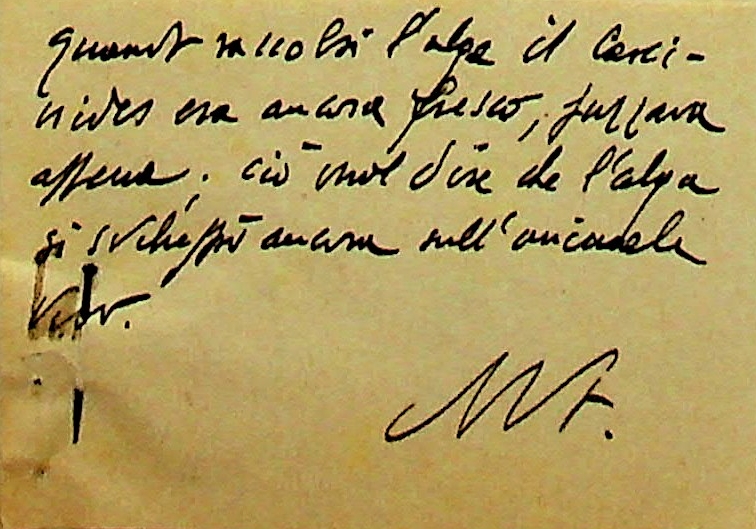 Quando raccolsi l'alga il Carci-
nides era ancora fresco, puzzava
appena; ciò vuol dire che l'alga
si sviluppò ancora sull'animale
vivo.